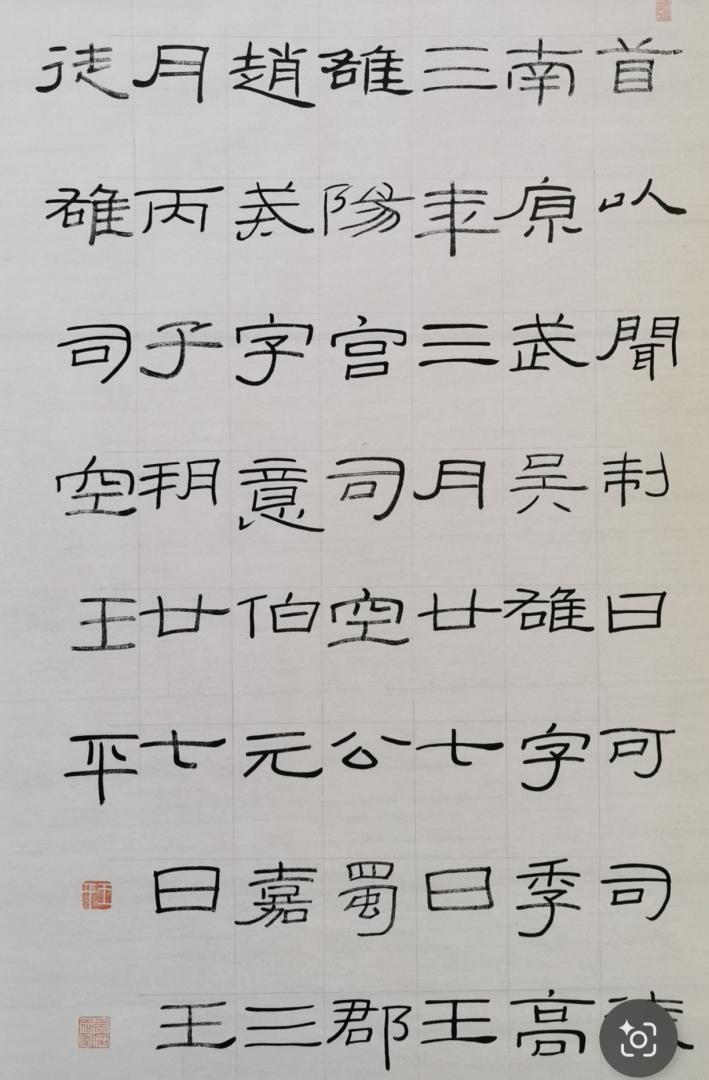 首以聞制曰可司
南原武吳雄字季高
三年三月廿七日壬
雒陽宮司空公蜀郡
趙戒字意伯元嘉三
月丙子朔廿七日壬
徒雄司空王平